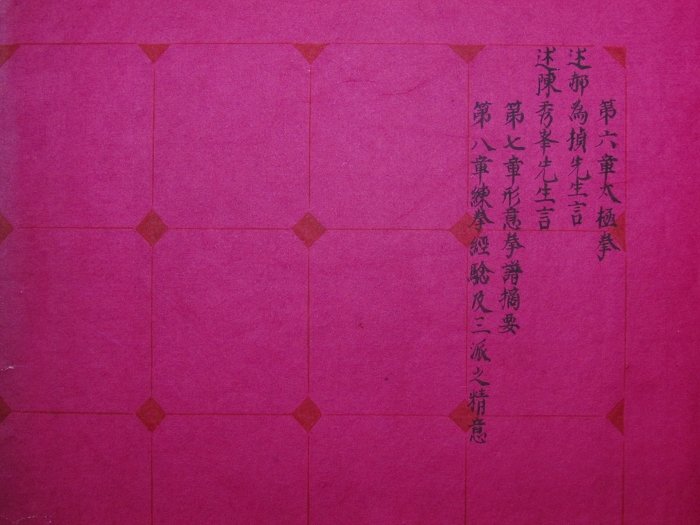 第六章太極拳
述郝為楨先生言
述陳秀峯先生言
第七章形意拳譜摘要
第八章練拳經驗及三派之精意